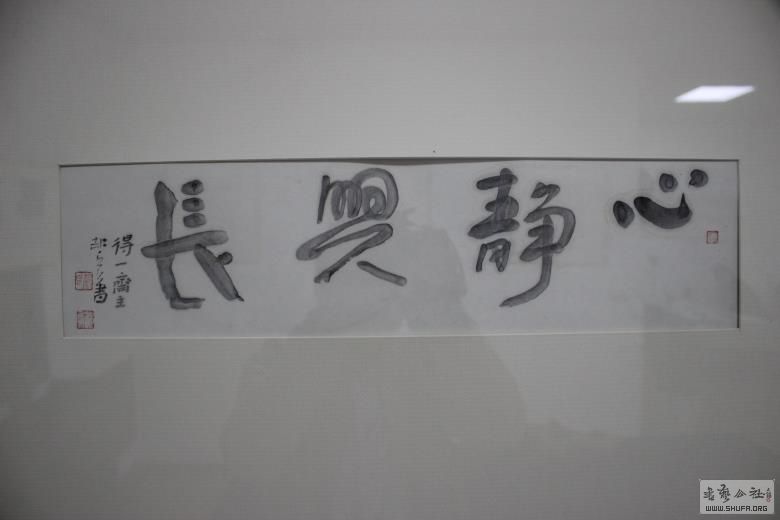 心静興長
得一齋主
書
書藝公社
WWW.SHUFA.ORG